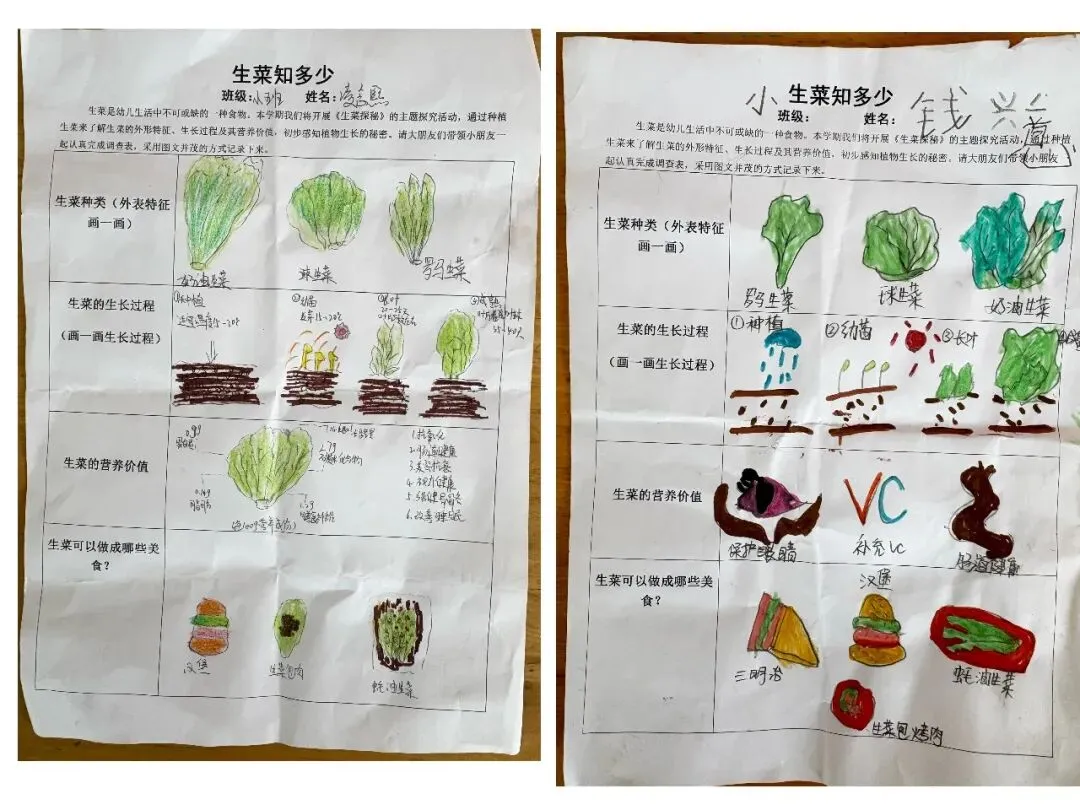 生菜知多少
班级:小班 姓名:凌
生菜是幼儿生活中不可或缺的一种食物。本学期我们将开展《生菜探秘》的主题探究活动,通过种植
生菜来了解生菜的外形特征、生长过程及其营养价值,初步感知植物生长的秘密。请大朋友们带领小朋友一
起认真完成调查表,采用图文并茂的方式记录下来。
生菜种类(外表特征
画一画)
奶油生菜
球生菜
罗马生菜
生菜的生长过程
(画一画生长过程)
①种植
②幼苗
③长叶
④成熟
生菜的营养价值
1.抗氧化
2.肠道健康
4.视力健康
6.改善睡眠
生菜可以做成哪些美
食?
汉堡
生菜包肉
蚝油生菜
生菜知多少
小
班级: 姓名: 钱兴
生菜是幼儿生活中不可或缺的一种食物。本学期我们将开展《生菜探秘》的主题探究活动,通过种植
生菜来了解生菜的外形特征、生长过程及其营养价值,初步感知植物生长的秘密。请大朋友们带领小朋友
一起认真完成调查表,采用图文并茂的方式记录下来。
生菜种类(外表特征
画一画)
罗马生菜
球生菜
奶油生菜
生菜的生长过程
(画一画生长过程)
①种植
②幼苗
③长叶
生菜的营养价值
保护眼睛
VC
补充VC
肠道健康
生菜可以做成哪些美
食?
三明治
汉堡
蚝油生菜
生菜包烤肉